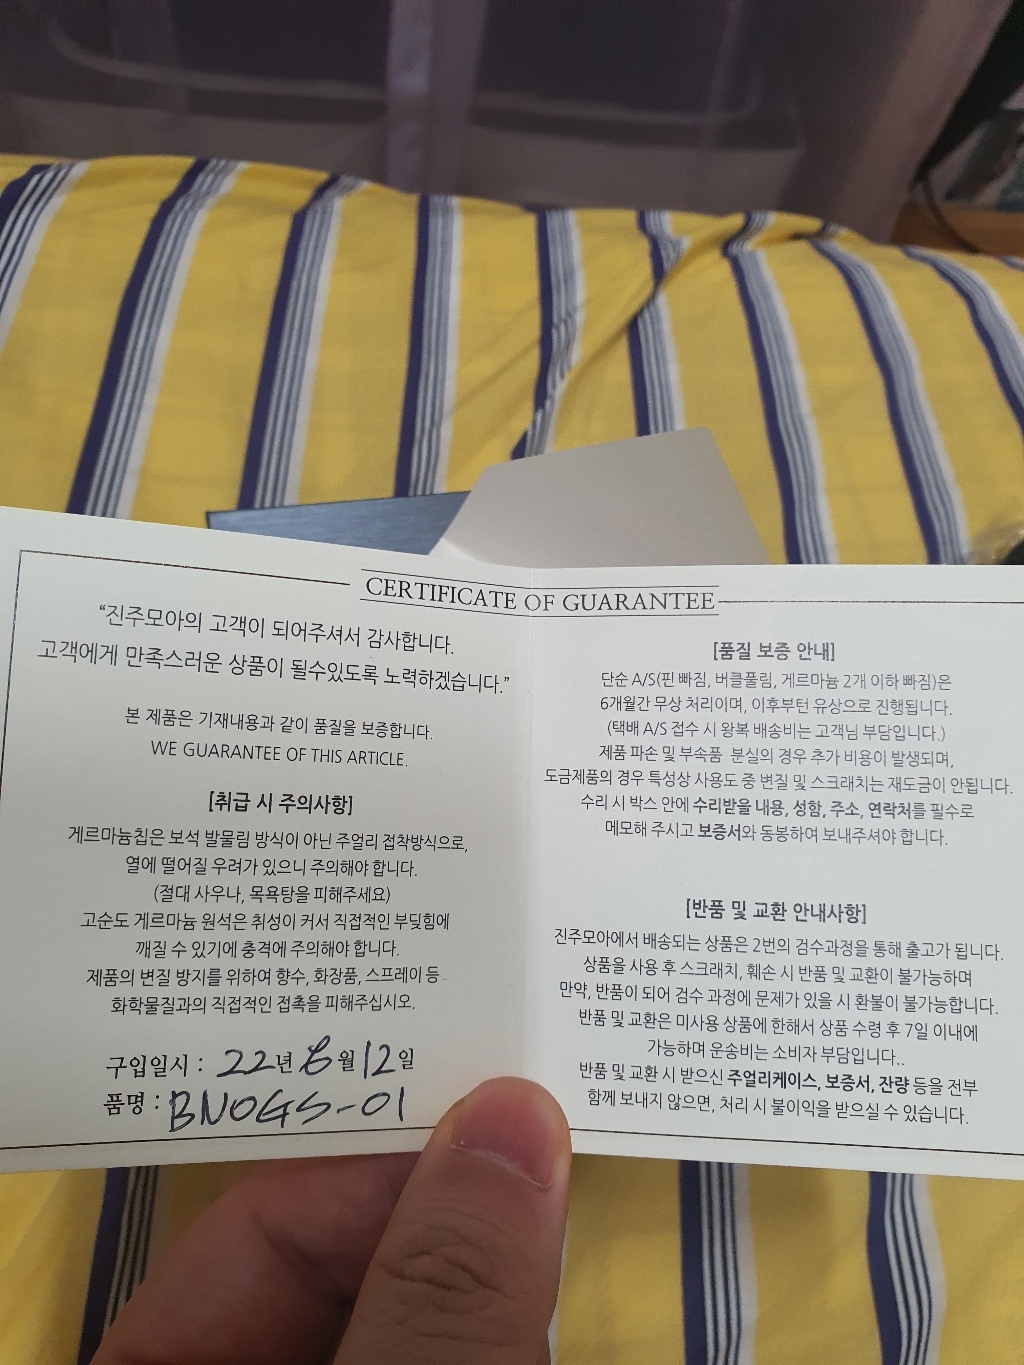 CERTIFICATE OF GUARANTEE
“진주모아의 고객이 되어주셔서 감사합니다.
고객에게 만족스러운 상품이 될수있도록 노력하겠습니다.”
본 제품은 기재내용과 같이 품질을 보증합니다.
WE GUARANTEE OF THIS ARTICLE.
[취급 시 주의사항]
게르마늄칩은 보석 발물림 방식이 아닌 주얼리 접착방식으로,
열에 떨어질 우려가 있으니 주의해야 합니다.
(절대 사우나, 목욕탕을 피해주세요)
고순도 게르마늄 원석은 취성이 커서 직접적인 부딪힘에
깨질 수 있기에 충격에 주의해야 합니다.
제품의 변질 방지를 위하여 향수, 화장품, 스프레이 등
화학물질과의 직접적인 접촉을 피해주십시오.
구입일시 : 22년 6월 12일
품명 : BNOGS-01
[품질 보증 안내]
단순 A/S(핀 빠짐, 버클풀림, 게르마늄 2개 이하 빠짐)은
6개월간 무상 처리이며, 이후부턴 유상으로 진행됩니다.
(택배 A/S 접수 시 왕복 배송비는 고객님 부담입니다.)
제품 파손 및 부속품 분실의 경우 추가 비용이 발생되며,
도금제품의 경우 특성상 사용도 중 변질 및 스크래치는 재도금이 안됩니다.
수리 시 박스 안에 수리받을 내용, 성함, 주소, 연락처를 필수로
메모해 주시고 보증서와 동봉하여 보내주셔야 합니다.
[반품 및 교환 안내사항]
진주모아에서 배송되는 상품은 2번의 검수과정을 통해 출고가 됩니다.
상품을 사용 후 스크래치, 훼손 시 반품 및 교환이 불가능하며
만약, 반품이 되어 검수 과정에 문제가 있을 시 환불이 불가능합니다.
반품 및 교환은 미사용 상품에 한해서 상품 수령 후 7일 이내에
가능하며 운송비는 소비자 부담입니다..
반품 및 교환 시 받으신 주얼리케이스, 보증서, 잔량 등을 전부
함께 보내지 않으면, 처리 시 불이익을 받으실 수 있습니다.